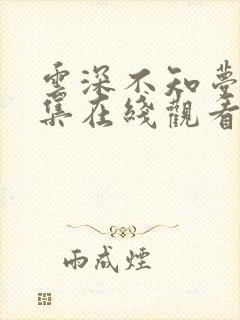 雲深不知夢
集在綫觀看
雨成煙